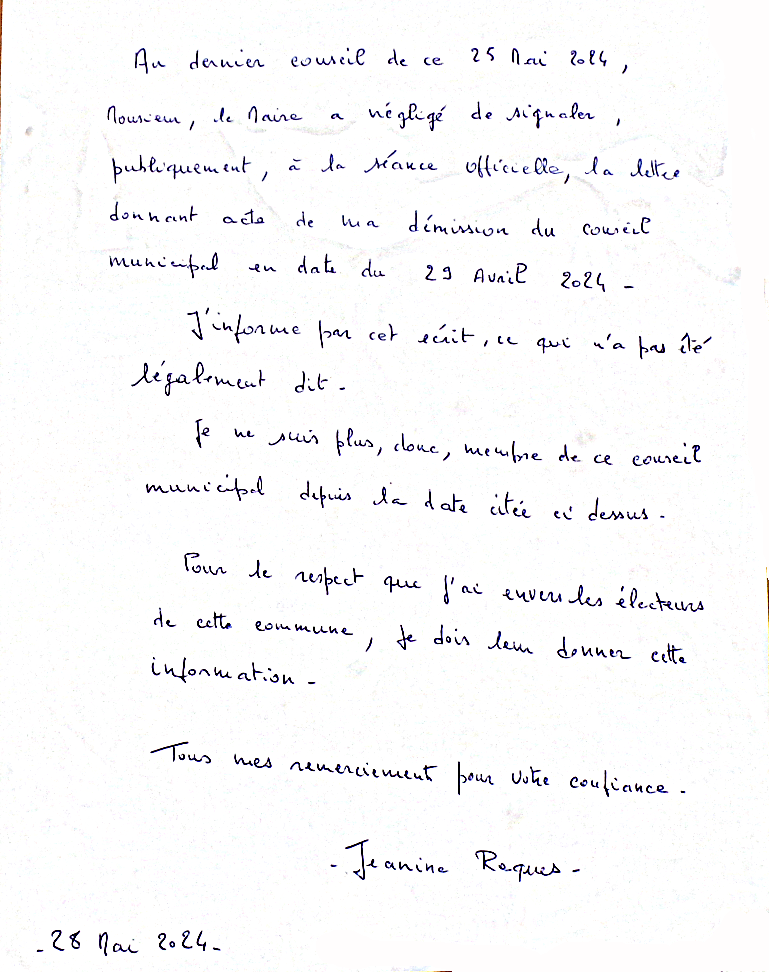 Au dernier conseil de ce 25 Mai 2024,
Monsieur, le Maire a négligé de signaler,
publiquement, à la séance officielle, la lettre
donnant acte de ma démission du conseil
municipal en date du 29 Avril 2024 -
J'informe par cet écrit, ce qui n'a pas été
légalement dit -
Je ne suis plus, donc, membre de ce conseil
municipal depuis la date citée ci dessus -
Pour le respect que j'ai envers les électeurs
de cette commune, je dois leur donner cette
information -
Tous mes remerciement pour votre confiance -
- Jeanine Roques -
- 28 Mai 2024 -